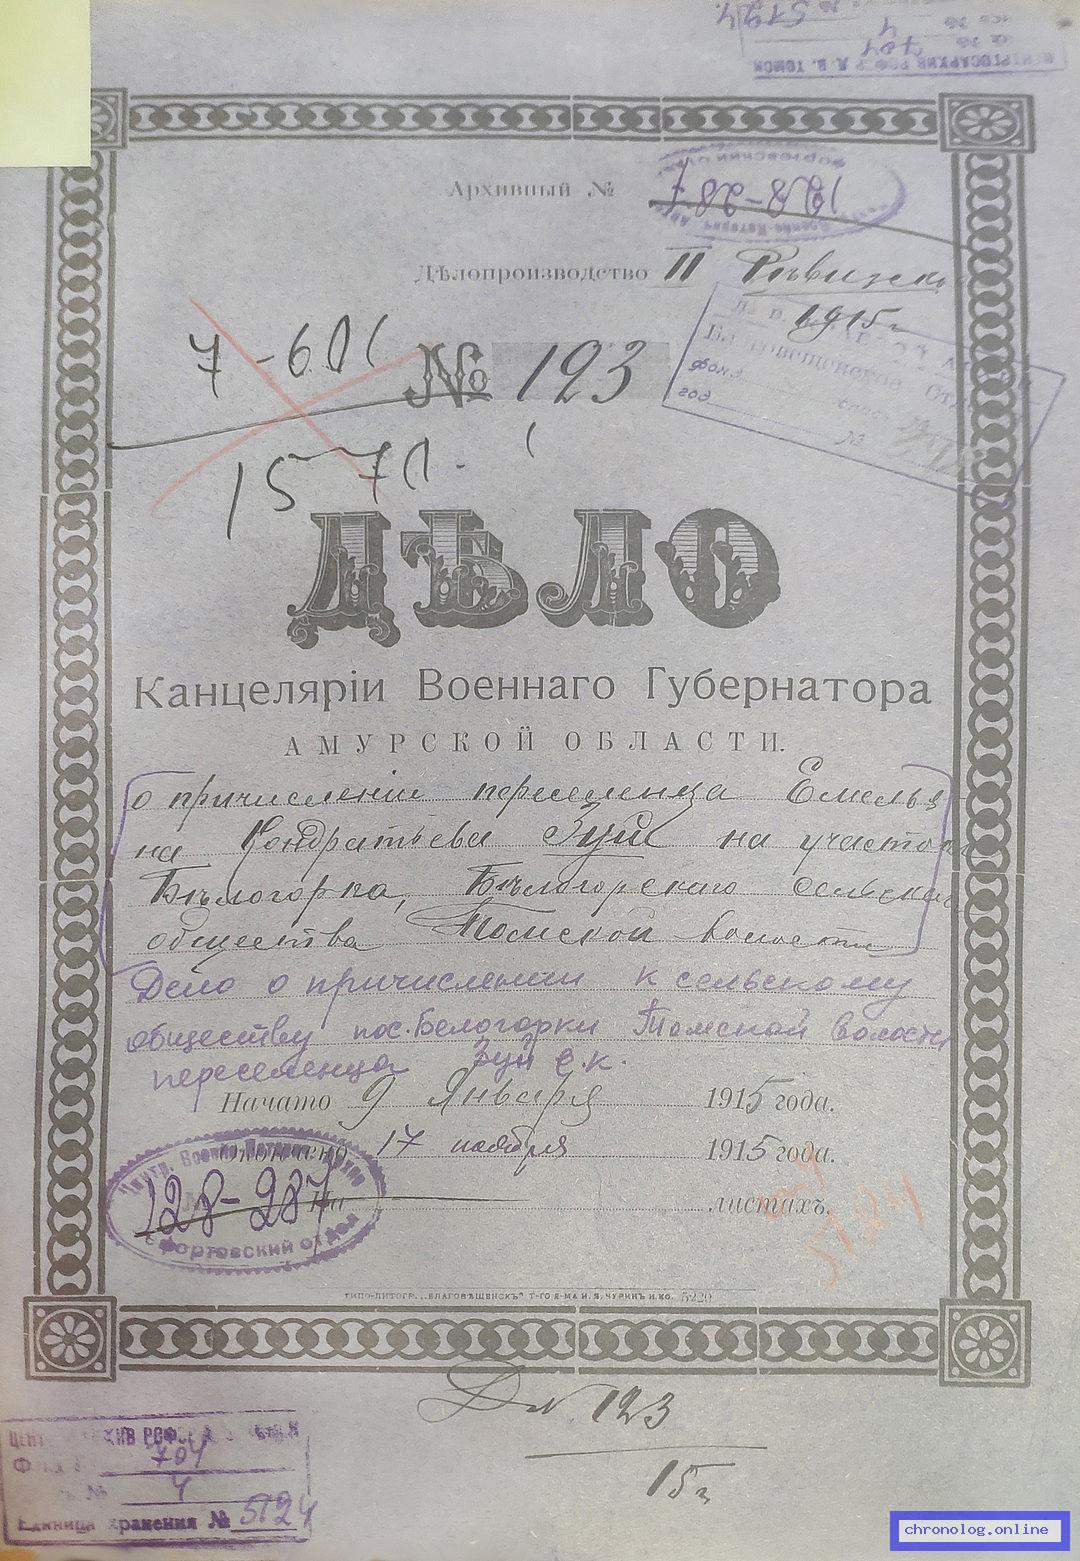 № 5124
4
704
ЦЕНТРОАРХИВ РСФСР Д. В. ТОМСК
Архивный № 128-287
Дѣлопроизводство II Ревизское
1915 г.
Благовещенское
фонд
год
№
7-601
№ 123
15 70.
ДѢЛО
Канцеляріи Военнаго Губернатора
АМУРСКОЙ ОБЛАСТИ.
о причисленіи переселенца Емелья-
на Кондратьева Зуй на участок
Бѣлогорка, Бѣлогорскаго сельскаго
общества Томской волости
Дело о причислении к сельскому
обществу пос. Белогорки Томской волости
переселенца Зуй Е.К.
Начато 9 Января 1915 года.
Окончено 17 ноября 1915 года.
На листахъ.
Центр. Военно-Историч. Архив
128-287
Лефортовский отдел
5124
ТИПО-ЛИТОГР. „БЛАГОВѢЩЕНСКЪ“ Т-ГО Д-МА И. Я. ЧУРИНЪ И КО. 5220
Д № 123
15 г.
704
№ 4
Единица хранения № 5124
chronolog.online